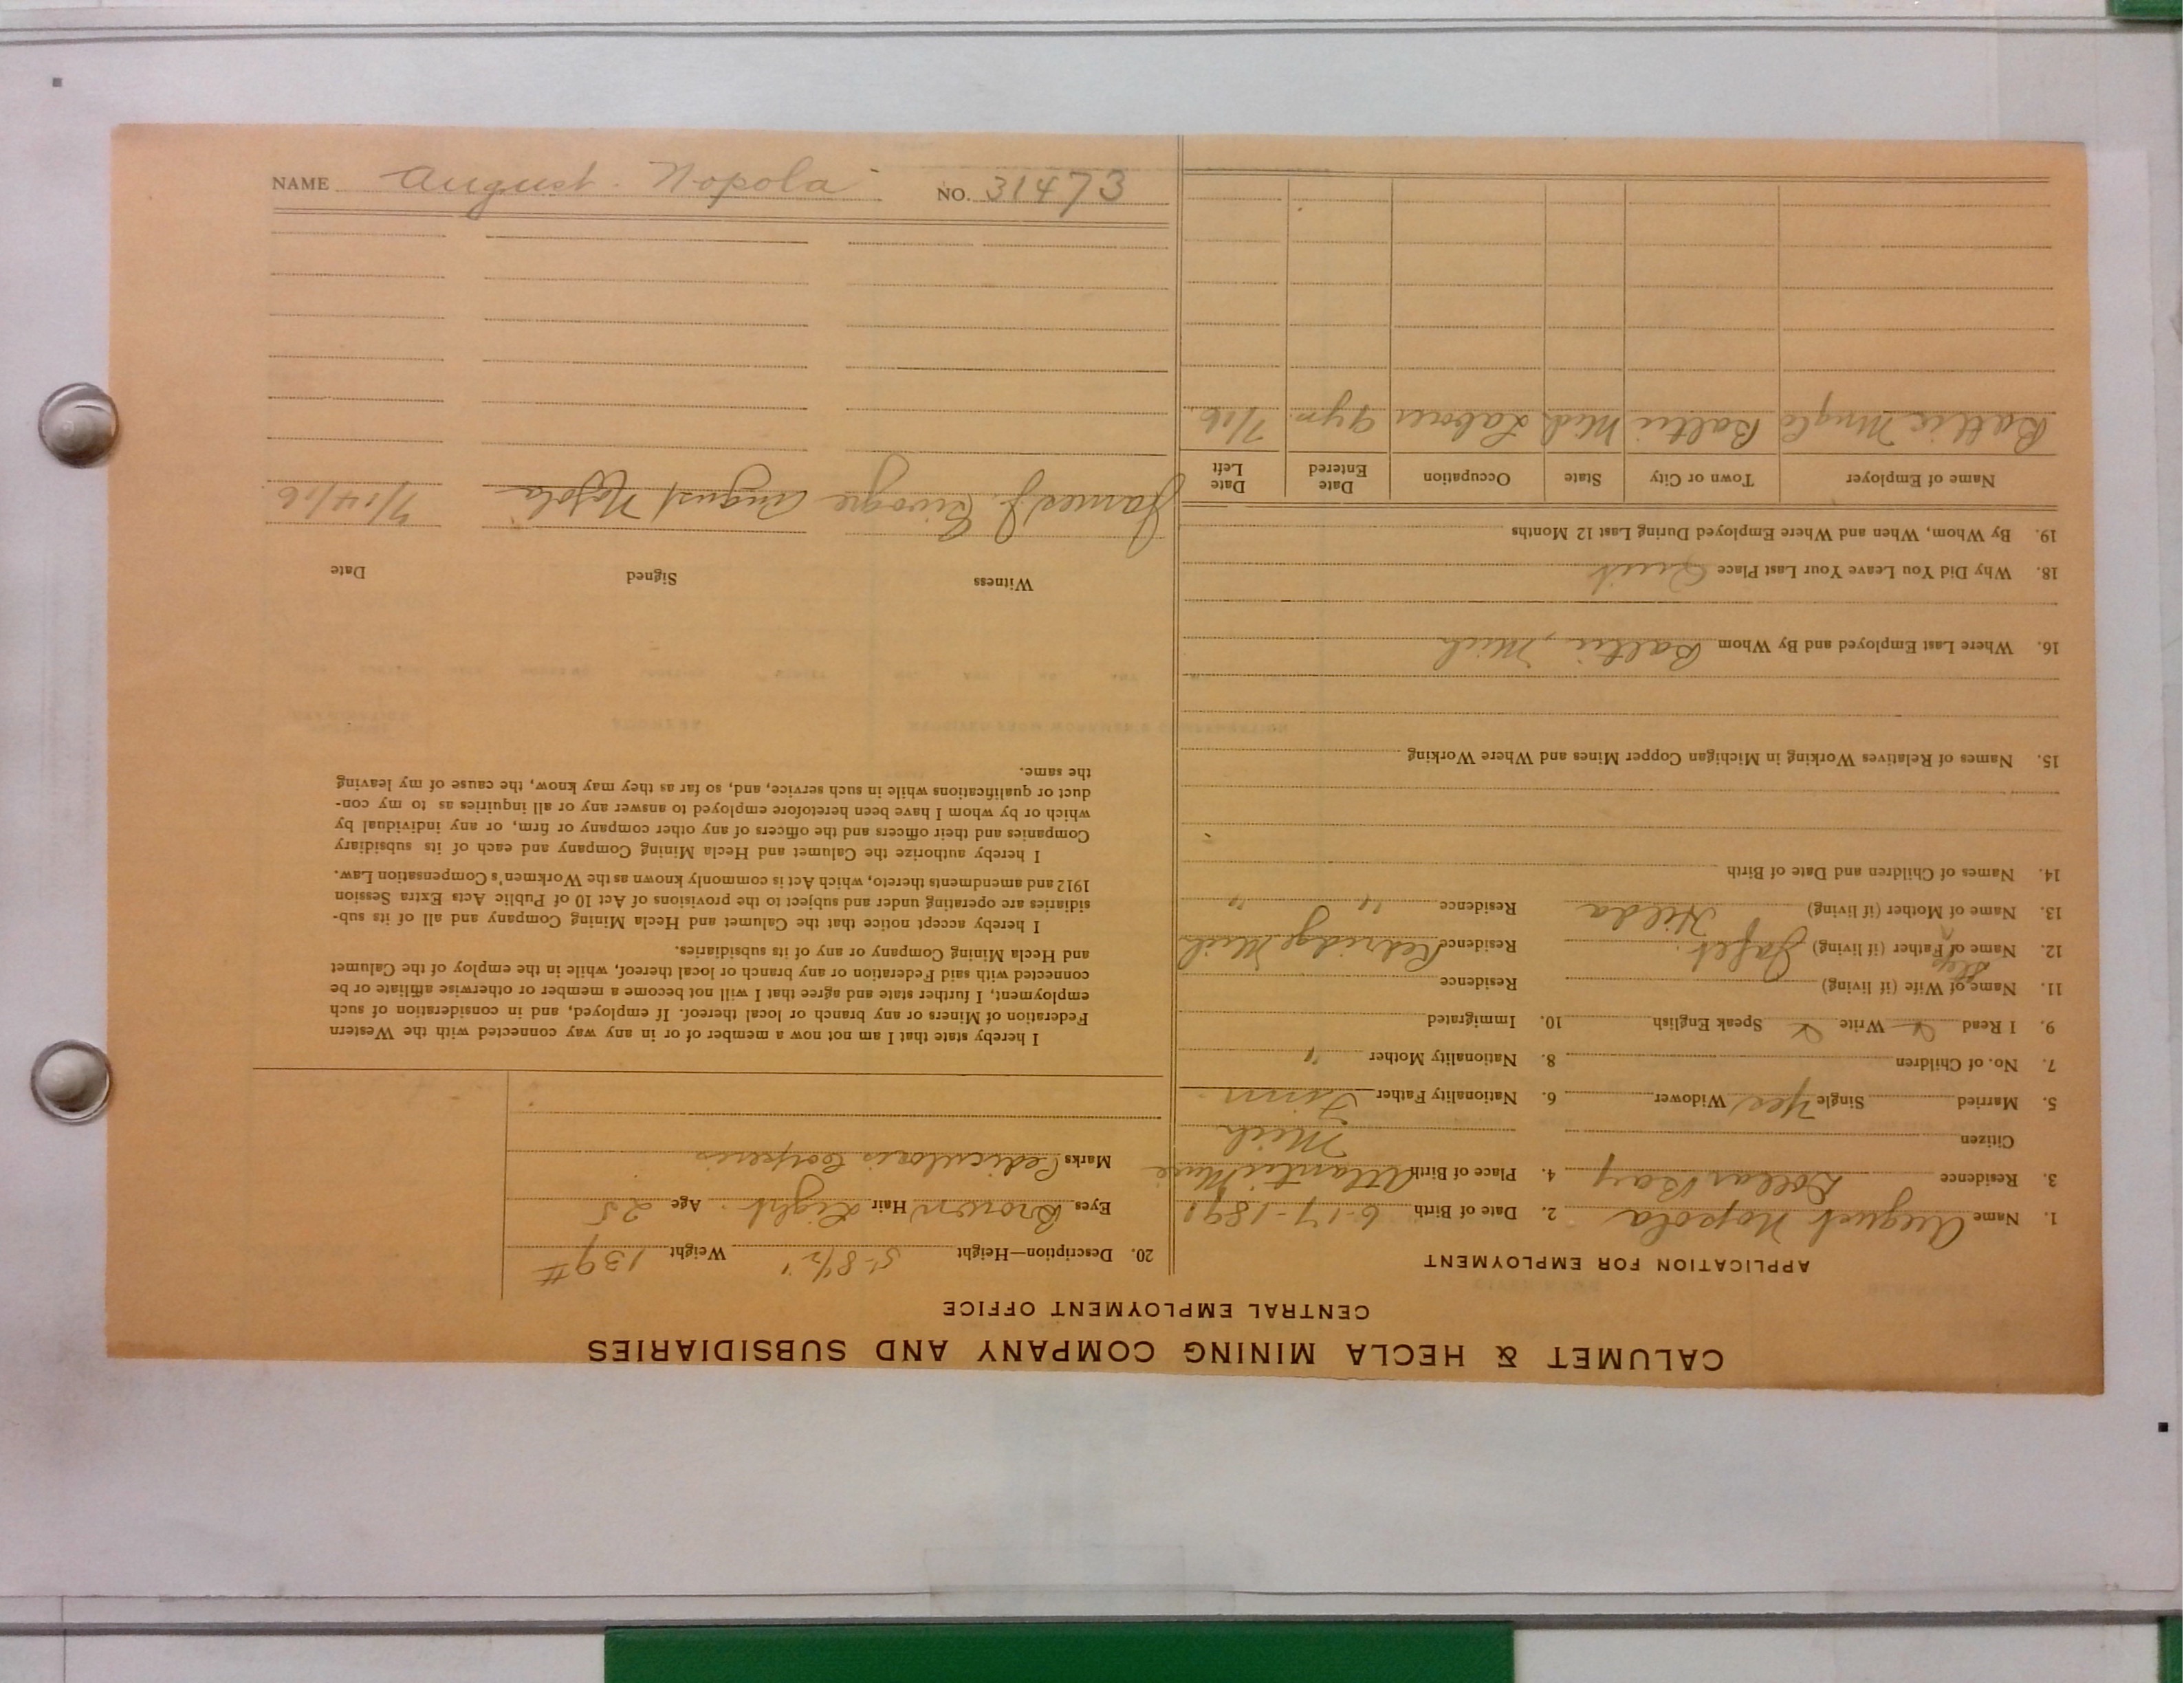 CALUMET & HECLA MINING COMPANY AND SUBSIDIARIES
CENTRAL EMPLOYMENT OFFICE
APPLICATION FOR EMPLOYMENT
1. Name August Nopola 2. Date of Birth 6-17-1891
3. Residence Dollar Bay 4. Place of Birth Atlantic Mine
Citizen Mich
5. Married Single Yes Widower 6. Nationality Father Finn
7. No. of Children 8. Nationality Mother "
9. I Read Write Speak English 10. Immigrated
11. Name of Wife (if living) Residence
Step
12. Name of Father (if living) Jafet Residence Redridge Mich
13. Name of Mother (if living) Hilda Residence " "
14. Names of Children and Date of Birth
15. Names of Relatives Working in Michigan Copper Mines and Where Working
16. Where Last Employed and By Whom Baltic, Mich
18. Why Did You Leave Your Last Place Quit
19. By Whom, When and Where Employed During Last 12 Months
Name of Employer Town or City State Occupation Date Entered Date Left
Baltic Baltic Mich Laborer 9 yrs 7/16
20. Description—Height 5'-8½" Weight 139#
Eyes Brown Hair Light Age 25
Marks Pediculosis Corporis
I hereby state that I am not now a member of or in any way connected with the Western
Federation of Miners or any branch or local thereof. If employed, and in consideration of such
employment, I further state and agree that I will not become a member or otherwise affiliate or be
connected with said Federation or any branch or local thereof, while in the employ of the Calumet
and Hecla Mining Company or any of its subsidiaries.
I hereby accept notice that the Calumet and Hecla Mining Company and all of its sub-
sidiaries are operating under and subject to the provisions of Act 10 of Public Acts Extra Session
1912 and amendments thereto, which Act is commonly known as the Workmen's Compensation Law.
I hereby authorize the Calumet and Hecla Mining Company and each of its subsidiary
Companies and their officers and the officers of any other company or firm, or any individual by
which or by whom I have been heretofore employed to answer any or all inquiries as to my con-
duct or qualifications while in such service, and, so far as they may know, the cause of my leaving
the same.
Witness Signed Date
James J. August Nopola 7/14/16
NAME August Nopola NO. 31473